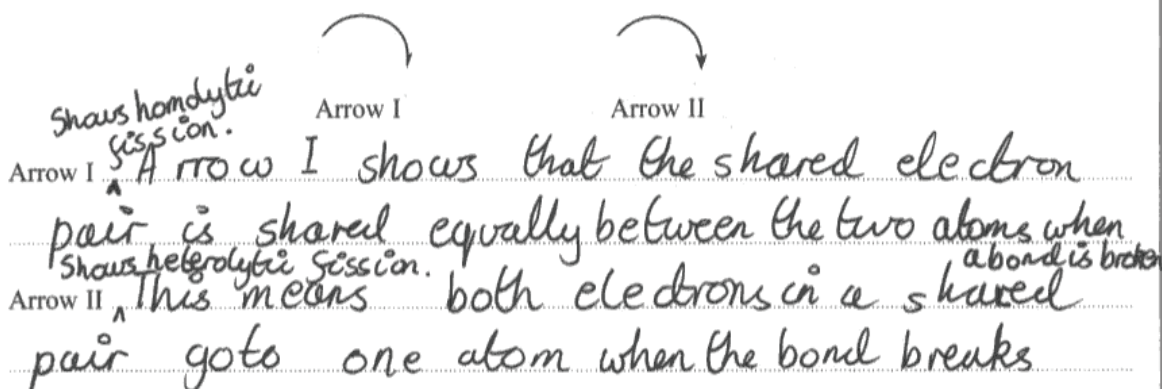 Arrow I Arrow II
Shows homolytic
fission.
Arrow I Arrow I shows that the shared electron
pair is shared equally between the two atoms when
a bond is broken
Shows heterolytic fission.
Arrow II This means both electrons in a shared
pair goto one atom when the bond breaks